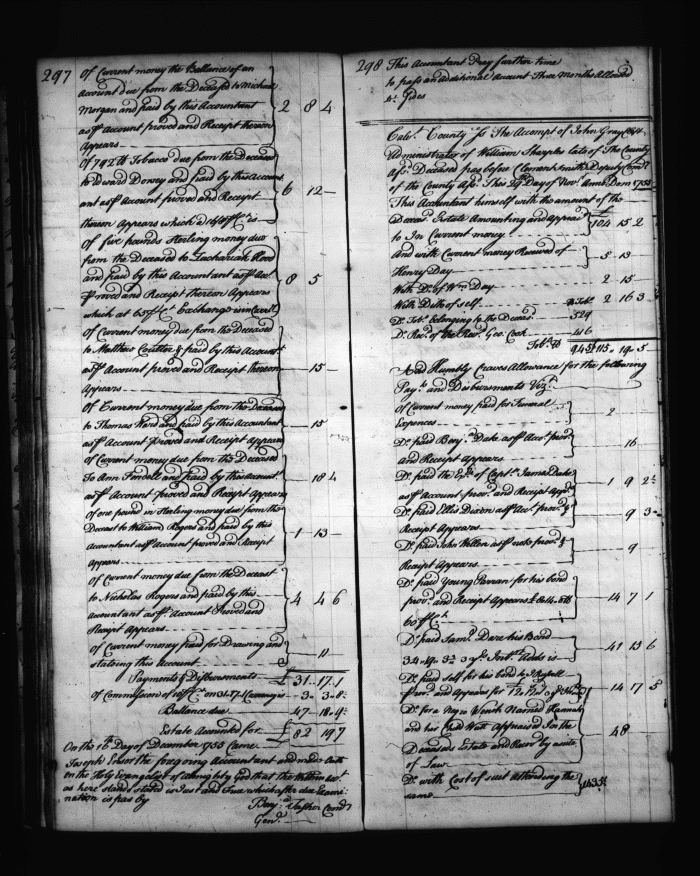 297
Of Current money the Ballance of an
Account due from the Deceased to Michael
Morgan and paid by this Accountant
as p Account proved and Receipt thereon
Appears 2 8 4
Of 792 lb Tobacco due from the Deceased
to Edward Dowey and paid by this Account
ant as p Account proved and Receipt
thereon Appears which a p Ct is 6 12 —
Of five pounds Sterling money due
from the Deceased to Zachariah Hood
and paid by this Accountant as p Acc
proved and Receipt thereon Appears
which at 65 p Ct Exchange is in Curr 8 5
Of Current money due from the Deceased
to Matthew Coulter & paid by this Account
as p Account proved and Receipt thereon
Appears — 15 —
Of Current money due from the Deceased
to Thomas Ward and paid by this Accountant
as p Account proved and Receipt Appears — 15
Of Current money due from the Deceased
To Ann and paid by this Account
as p Account proved and Receipt Appears — 18 4
Of one pound in Sterling money due from the
Deceast to William Rogers and paid by this
Accountant as p Account proved and Receipt
Appears 1 13 —
Of Current money due from the Deceast
to Nicholas Rogers and paid by this
Accountant as p Account Proved and
Receipt Appears 4 4 6
Of Current money paid for Drawing and
stateing this Account — 11 —
Payments & Disbursments £ 31 .. 17 .. 1
Of Commission of 10 p Ct on 31 .. 17 .. 1 Currency is 3 .. 3 .. 8
Ballance due 47 .. 18 ..
Estate Accounted for £ 82 19 7
On the 16th Day of December 1755 Came
Joseph Ensor the foregoing Accountant and made Oath
on the Holy Evangelist of almighty God that the within Acct
as here stands stated is Just and True which after due Exami
nation is pass by
Benj. Tasker Com
Genl
298 This Accountant Pray further time
to pass an Additional Account Three Months Allowed
p Gides
Calvt. County Ss The Accompt of John Gray
Administrator of William Sharples late of The County
Afd. Deceased has before Clement Smith Deputy Com
of the County Afd. This 29th Day of Novr. Anno Dom 1755
This Accountant himself with the amount of the
Deced. Estate Amounting and Appears
to In Current money 104 15 2
And with Current money Received of
Henry Day 5 . 13
With Do. of Wm Day 2 15
With Ditto of self lb Tobo 2 16 3
Do. Tobo. belonging to the Deced. 529
Do. Recd. of the Revd. Geo: Cook 416
Tobo. lb 945 £ 115 .. 19 .. 5
And Humbly Craves Allowance for the following
Payts and Disbursments Vizt.
Of Current money paid for Funeral
Expences 2
Do. paid Benj. Duke as p Acct. provd.
And Receipt Appears — 16 —
Do. paid the Exrs. of Capt. James Duke
as p Account provd. and Receipt Appd. 1 9 2
Do. paid Ellis Dixon as p Acct. provd. &
Receipt Appears — 9 3
Do. paid John Hellen as p note provd. &
Receipt Appears — 9
Do. paid Young Parran for his bond
provd. and Receipt Appears
60 p Ct 14 7 1
Do. paid Saml. Dare his Bond
34 .. 14 .. 3 & Intt. Addd is 41 13 6
Do. paid self for his bond
provd and Appears for 14 17 5
Do. for a Negro Wench Named Hannah
and her Child Watt Appraised In the
Deceaseds Estate and Recov by suite
of Law 48
Do. with Cost of suit Attending the
same